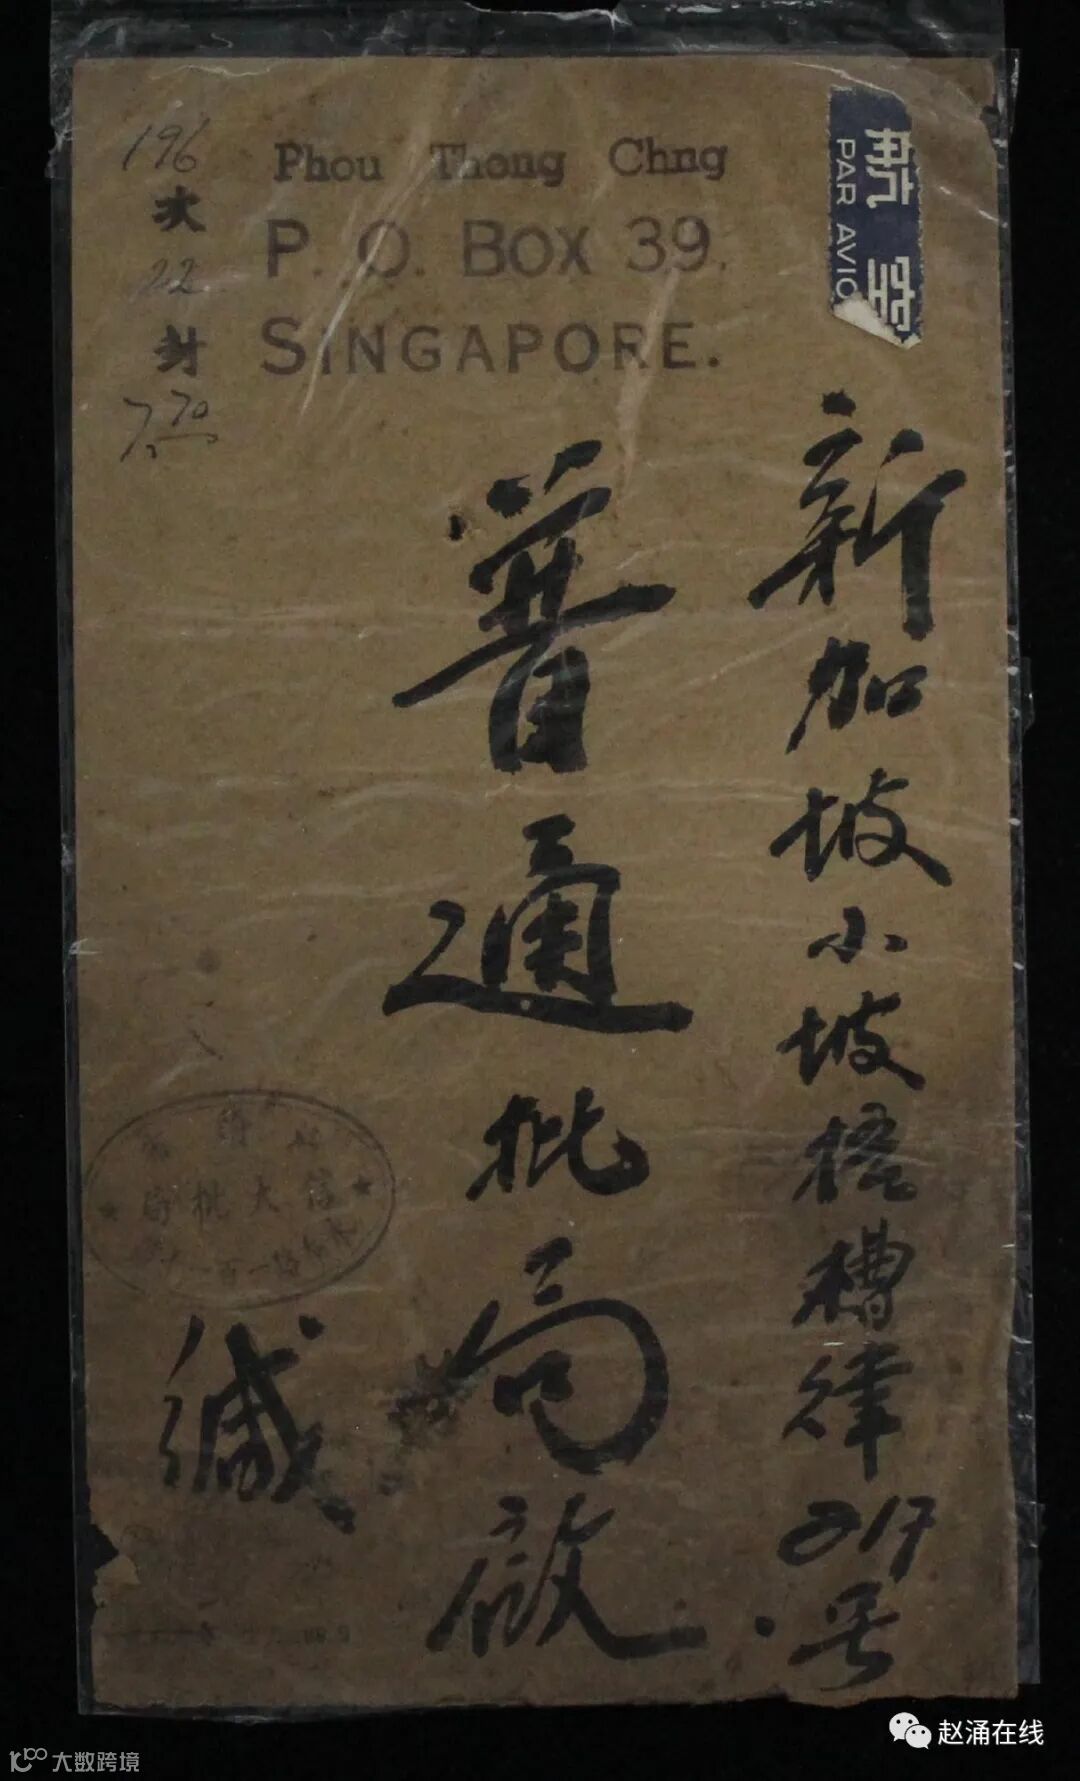 196
次
22
封
7.70
Phou Theng Chng
P. O. BOX 39.
SINGAPORE.
航空
PAR AVIO
新加坡小坡梧槽律217号
普通批局啟
信大批局
缄
赵涌在线
大数跨境